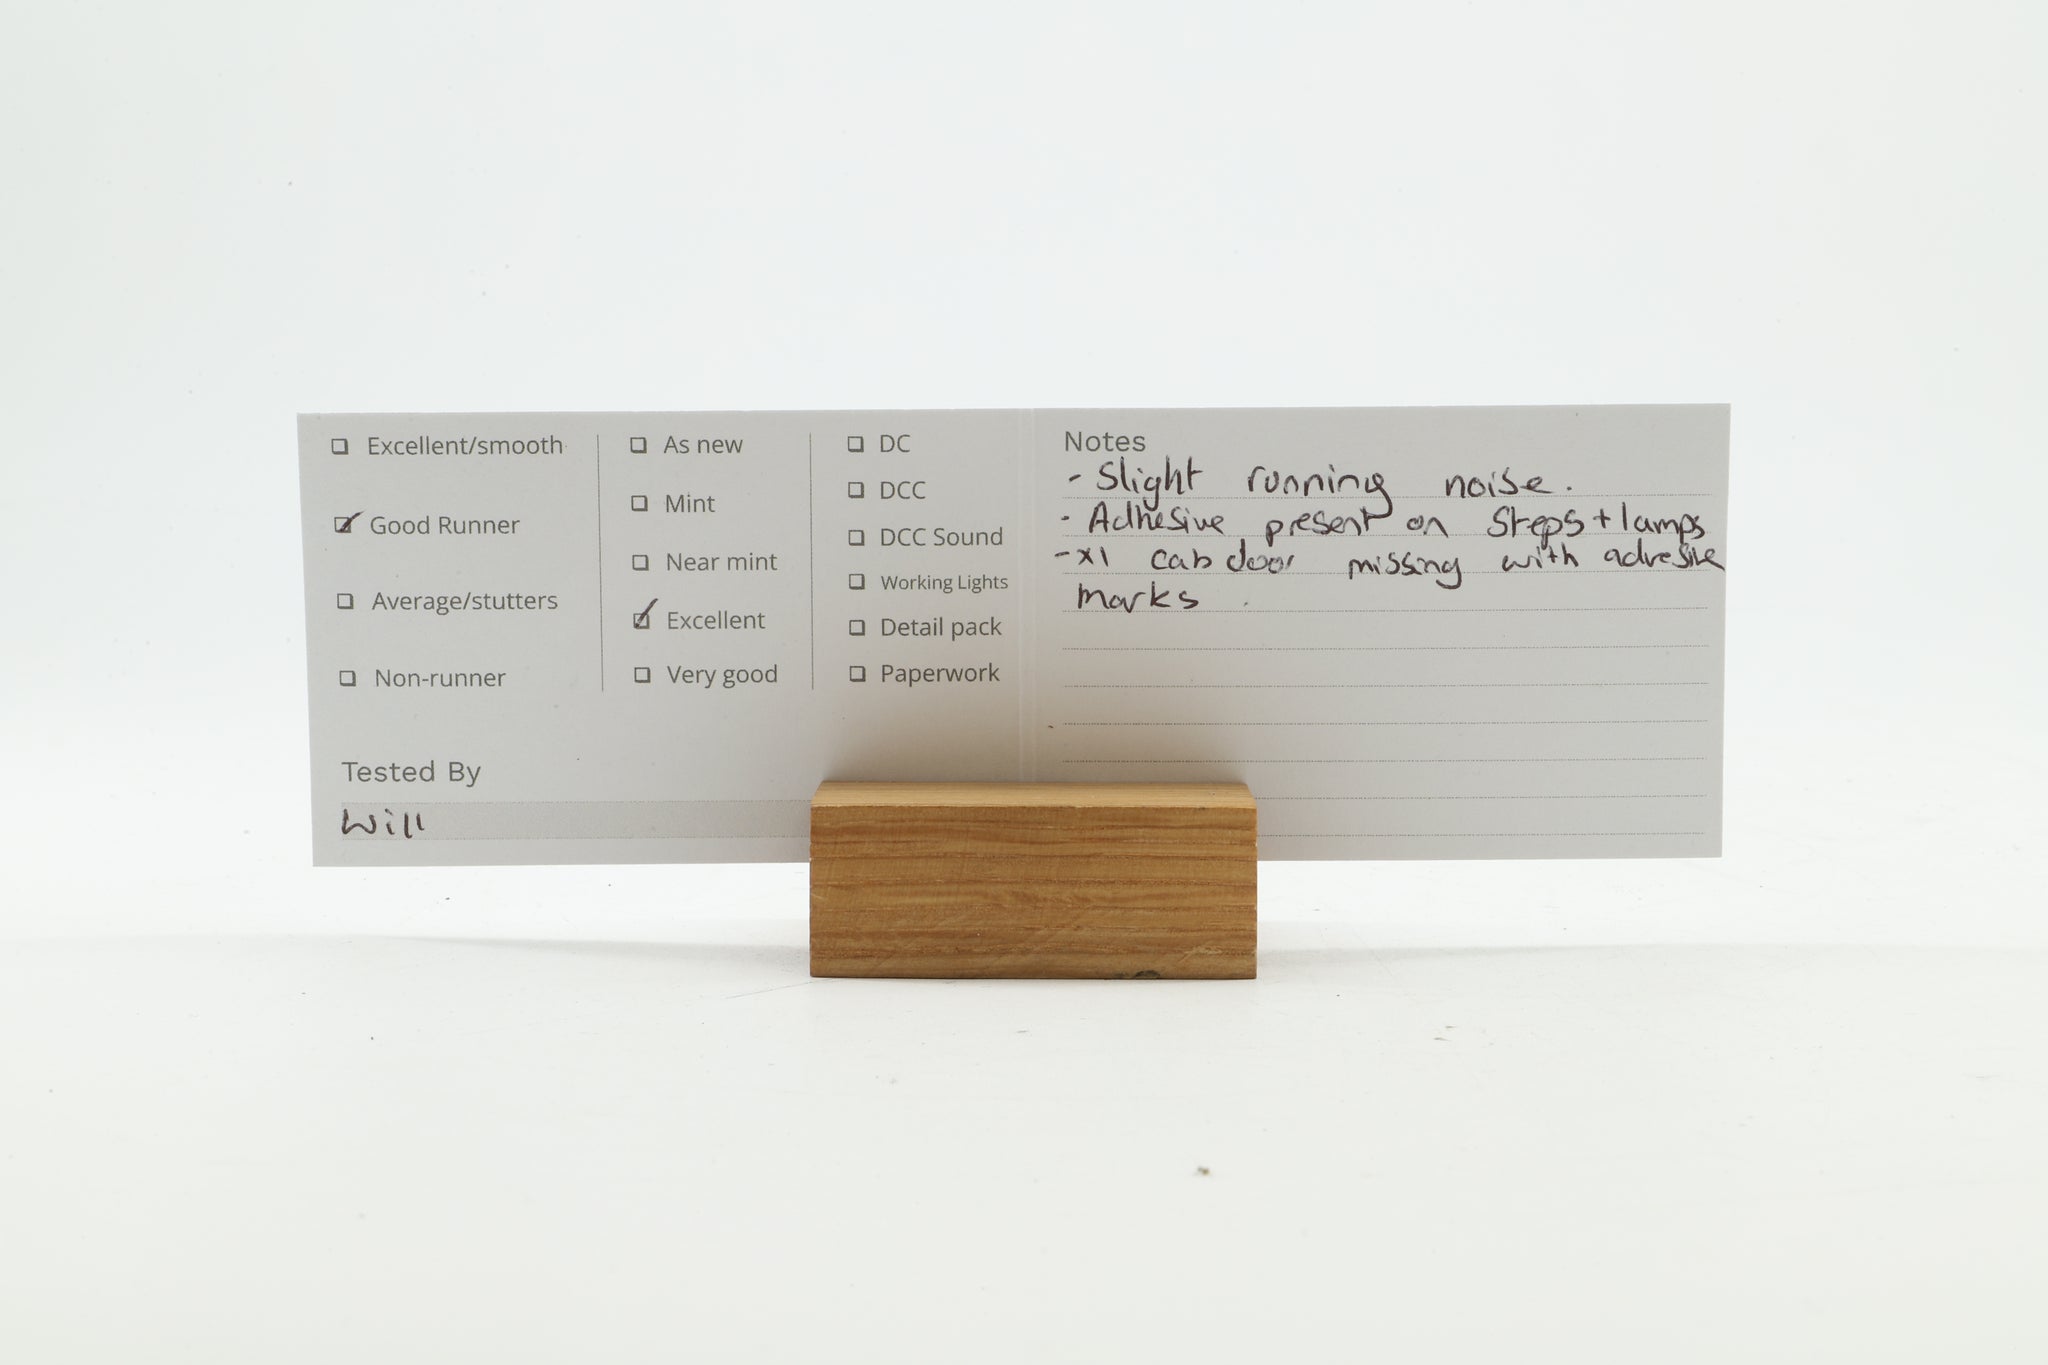 Excellent/smooth
Good Runner
Average/stutters
Non-runner
As new
Mint
Near mint
Excellent
Very good
DC
DCC
DCC Sound
Working Lights
Detail pack
Paperwork
Tested By
Will
Notes
- Slight running noise.
- Adhesive present on Steps + lamps
- x1 cab door missing with adhesive
marks.